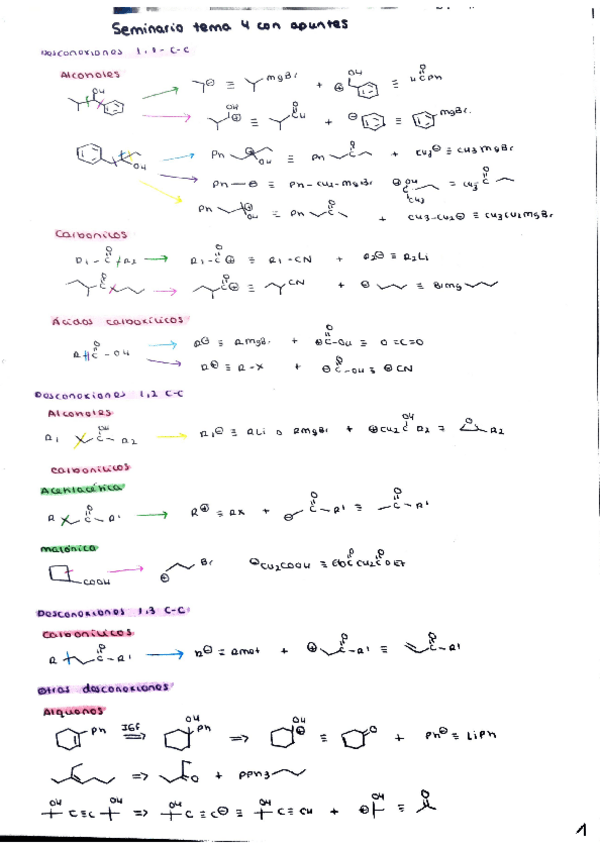 Seminario tema 4 con apuntes
Desconexiones 1,1- C-C
Alcoholes
OH
⊖ ≡ MgBr + OH ⊕ ≡ HCPh O
OH ⊕ ≡ O H + ⊖ ≡ MgBr.
OH
Ph ⊕ OH ≡ Ph O + CH3⊖ ≡ CH3MgBr
Ph-⊖ ≡ Ph-CH2-MgBr ⊕ OH CH3 = CH3 O
Ph ⊕ OH ≡ Ph O + CH3-CH2⊖ ≡ CH3CH2MgBr
Carbonilos
R1-C-R2 O → R1-C⊕ O ≡ R1-CN + R2⊖ ≡ R2Li
O → O ⊕ ≡ CN + ⊖ ≡ BrMg
Ácidos carboxílicos
R-C-OH O → R⊖ ≡ RMgBr + ⊕C-OH O ≡ O=C=O
R⊕ ≡ R-X + ⊖C-OH O ≡ ⊖CN
Desconexiones 1,2 C-C
Alcoholes
R1 C-R2 OH → R1⊖ ≡ RLi o RMgBr + ⊕CH2 C R2 OH = O R2
Carbonilicos
Acetilacética
R C-R' O → R⊕ ≡ RX + ⊖ C-R' O ≡ C-R' O
malónica
COOH → ⊕ Br ⊖CH2COOH ≡ EtOCCH2COEt O O
Desconexiones 1,3 C-C
Carbonilicos
R C-R' O → R⊖ = Rmet + ⊕ C-R' O ≡ C-R' O
Otras desconexiones
Alquenos
Ph IGF ⇒ OH Ph ⇒ OH ⊕ ≡ O + Ph⊖ ≡ LiPh
⇒ O + PPh3
OH C≡C OH ⇒ OH C≡C⊖ ≡ OH C≡CH + OH ⊕ ≡ O
1